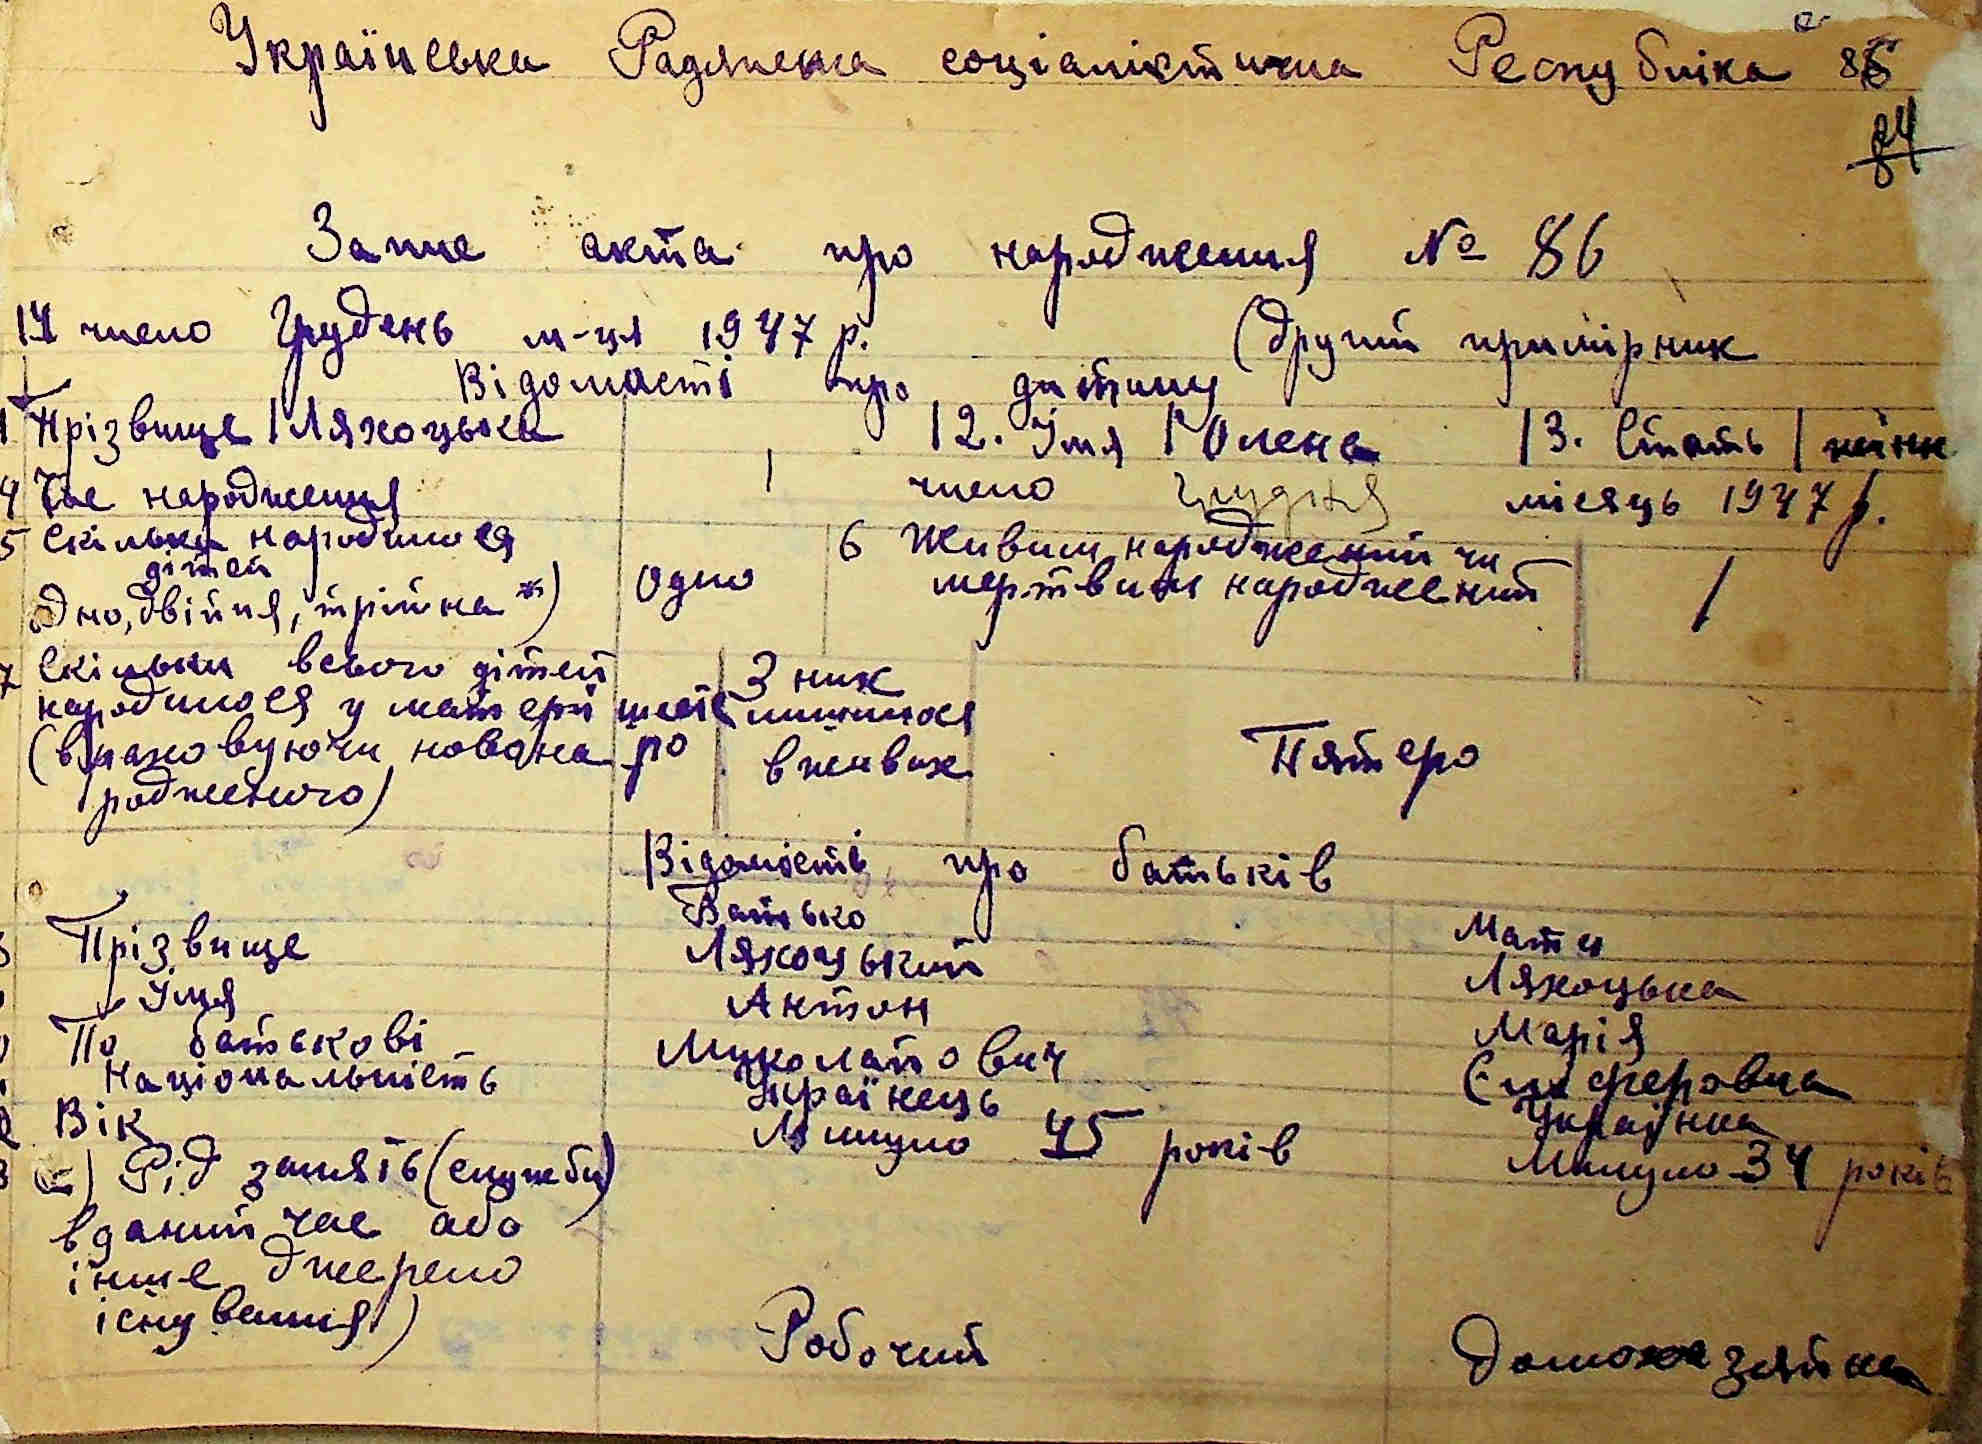 Українська Радянська соціалістична Республіка 85
84
Запис акта про народження № 86
число Грудень м-ця 1947 р. (другий примірник
Відомості про дитину
1 Прізвище | Ляхоцька | 2. Імя | Олена | 3. Стать | жінк
4 Час народження | число грудня місяць 1947 р.
5 скільки народилося дітей одно, двійня, трійна *) одно
6 Живим народжений чи мертвим народжений /
7 Скільки всього дітей народилося у матері (враховуючи новона родженого) шестеро
З них лишилося в живих Пятеро
Відомості про батьків
Батько Мати
Прізвище Ляхоцький Ляхоцька
Імя Антон Марія
По батькові Миколайович
Національність Українець Українка
Вік Минуло 45 років Минуло 34 років
) Рід занять (служби
в даний час або
інше джерело
існування) Робочий Домохазяйка